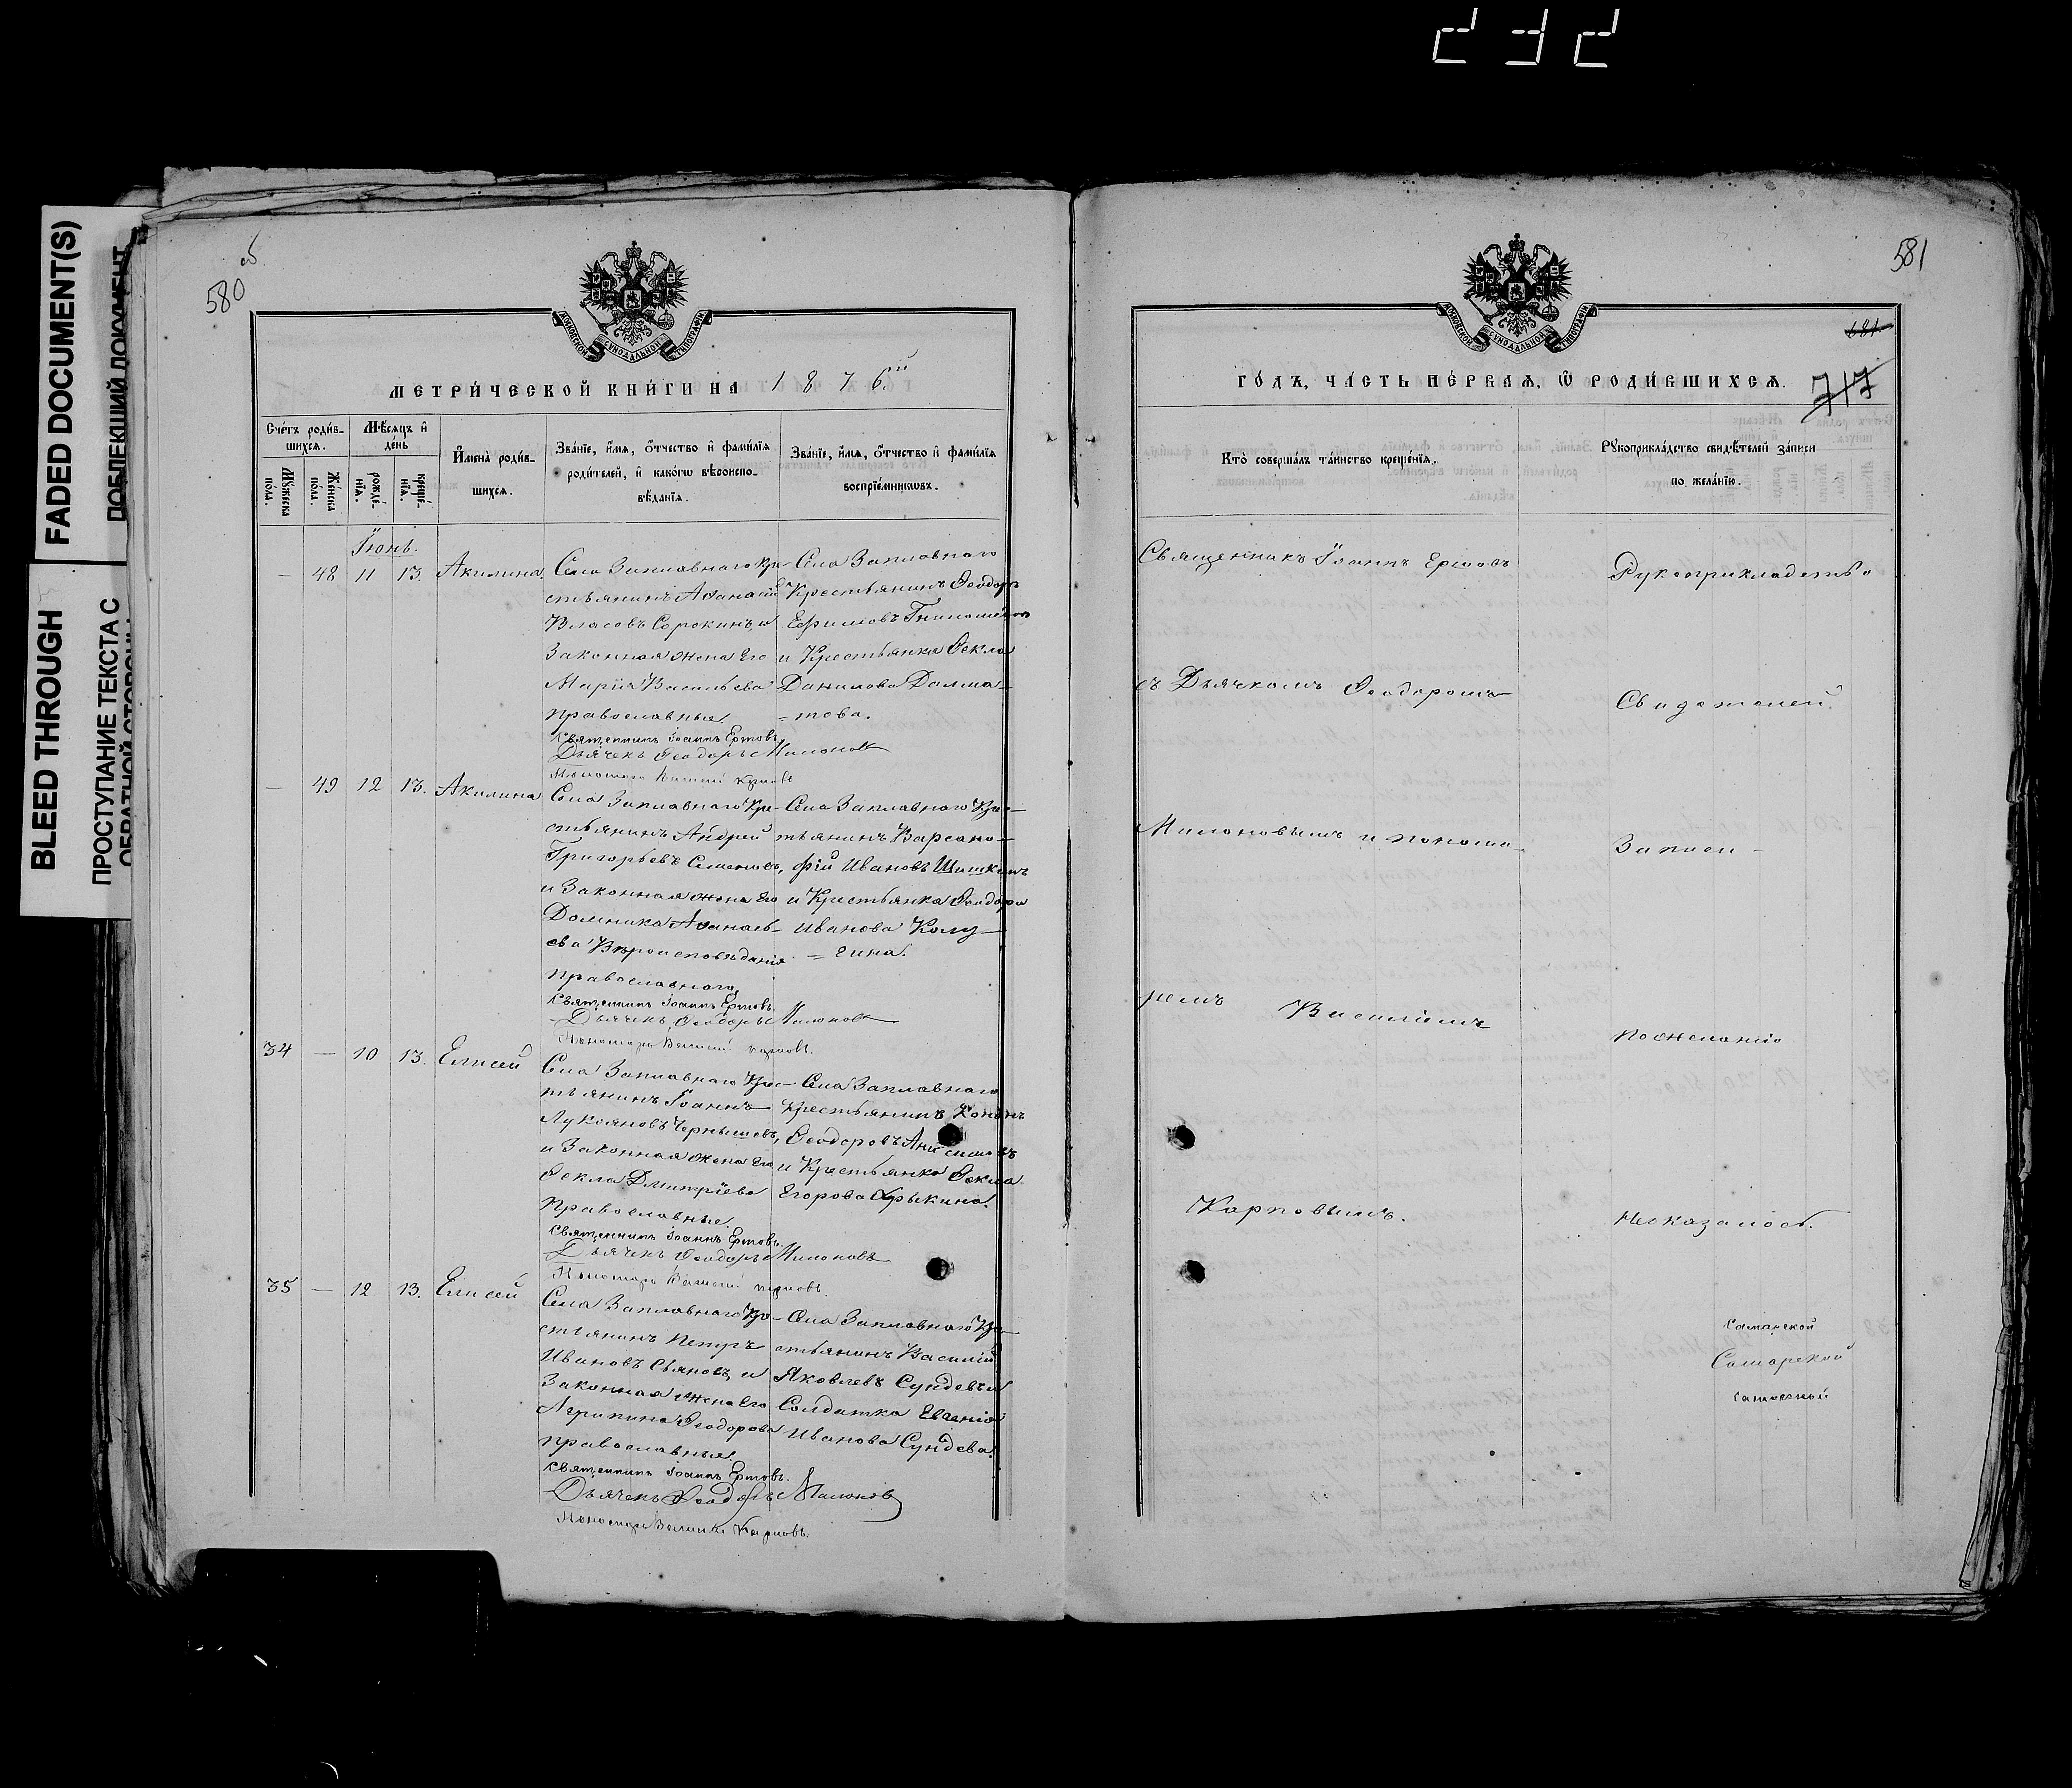 232
FADED DOCUMENT(S)
BLEED THROUGH
ПРОСТУПАНИЕ ТЕКСТА С
580 об
МОСКОВСКОЙ СУНОДАЛЬНОЙ ТИПОГРАФІИ
МЕТРИ́ЧЕСКОЙ КНИ́ГИ НА 1876.й
Сче́тъ роди́в-
шихсѧ.
Мꙋ́жеска по́ла.
Же́нска по́ла.
Мѣ́сѧцъ и҆ де́нь
рожде́-нїѧ.
креще́-нїѧ.
И҆мена̀ роди́в-
шихсѧ.
Зва́нїе, и҆́мѧ, ѻ҆́тчество и҆ фами́лїѧ
роди́телей, и҆ како́гѡ вѣроиспо-
вѣ́данїѧ.
Зва́нїе, и҆́мѧ, ѻ҆́тчество и҆ фами́лїѧ
воспрїе́мникѡвъ.
Іюнь.
— 48 11 13. Акилина.
Села Заплавнаго Кре-
стьянинъ Аѳанасій
Власовъ Сорокинъ, и
Законная жена Его
Марія Васильева
Православные.
Священникъ Іоаннъ Ертовъ.
Дьячекъ Ѳеодоръ Милоновъ
Пономарь Василій Карповъ
Села Заплавнаго
Крестьянинъ Ѳеодоръ
Ефимовъ
и Крестьянка Ѳекла
Данилова Долма-
=това.
— 49 12 13. Акилина
Села Заплавнаго Кре-
стьянинъ Андрей
Григорьевъ Семеновъ,
и Законная жена Его
Домника Аѳанась-
ева Вѣроисповѣданія
Православнаго.
Священникъ Іоаннъ Ертовъ.
Дьячекъ Ѳеодоръ Милоновъ
Пономарь Василій Карповъ.
Села Заплавнаго Кре-
стьянинъ Варсано-
фій Ивановъ Шишкинъ
и Крестьянка Ѳеодора
Иванова Колу-
=гина.
34 — 10 13. Елисей
Села Заплавнаго Крес-
тьянинъ Іоаннъ
Лукояновъ Чернышевъ,
и Законная жена Его
Ѳекла Дмитріева
Православные.
Священникъ Іоаннъ Ертовъ.
Дьячекъ Ѳеодоръ Милоновъ
Пономарь Василій Карповъ.
Села Заплавнаго
Крестьянинъ Кононъ
Ѳеодоровъ Анисимовъ
и Крестьянка Ѳекла
Егорова
35 — 12 13. Елисей
Села Заплавнаго Кре-
стьянинъ Петръ
Ивановъ и
Законная жена Его
Агрипина Ѳеодорова
Православные.
Священникъ Іоаннъ Ертовъ.
Дьячекъ Ѳеодоръ Милоновъ
Пономарь Василій Карповъ.
Села Заплавнаго Кре-
стьянинъ Василій
Яковлевъ Сундевъ и
Солдатка Евгенія
Иванова Сундева.
581
681
717
МОСКОВСКОЙ СУНОДАЛЬНОЙ ТИПОГРАФІИ
ГО́ДЪ, ЧА́СТЬ ПЕ́РВАѦ, Ѡ҆ РОДИ́ВШИХСѦ.
Кто̀ соверша́лъ та́инство креще́нїѧ.
Рꙋкоприкла́дство свидѣ́телей за́писи
по жела́нїю.
Священникъ Іоаннъ Ертовъ
съ Дьячкомъ Ѳеодоромъ
Милоновымъ и понома-
ремъ Василіемъ
Карповымъ.
Рукоприкладство
Свидетелей
Записи
по желанію
Неоказалось.
Самарской
Самарской
Самарской